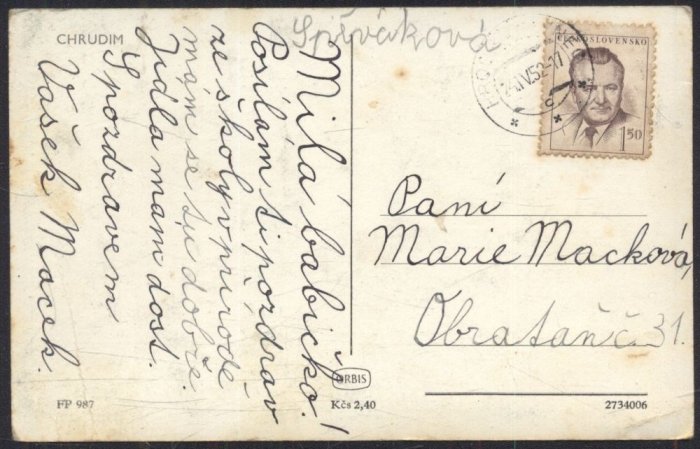 CHRUDIM
Spěváková
Milá babičko!
Posílám ti pozdrav
ze školy v přírodě
mám se tu dobře.
Jídla mám dost.
S pozdravem
Vašek Macek.
ORBIS
FP 987
Kčs 2,40
ČESKOSLOVENSKO
1.50
Paní
Marie Macková,
Obrataň č. 31.
2734006